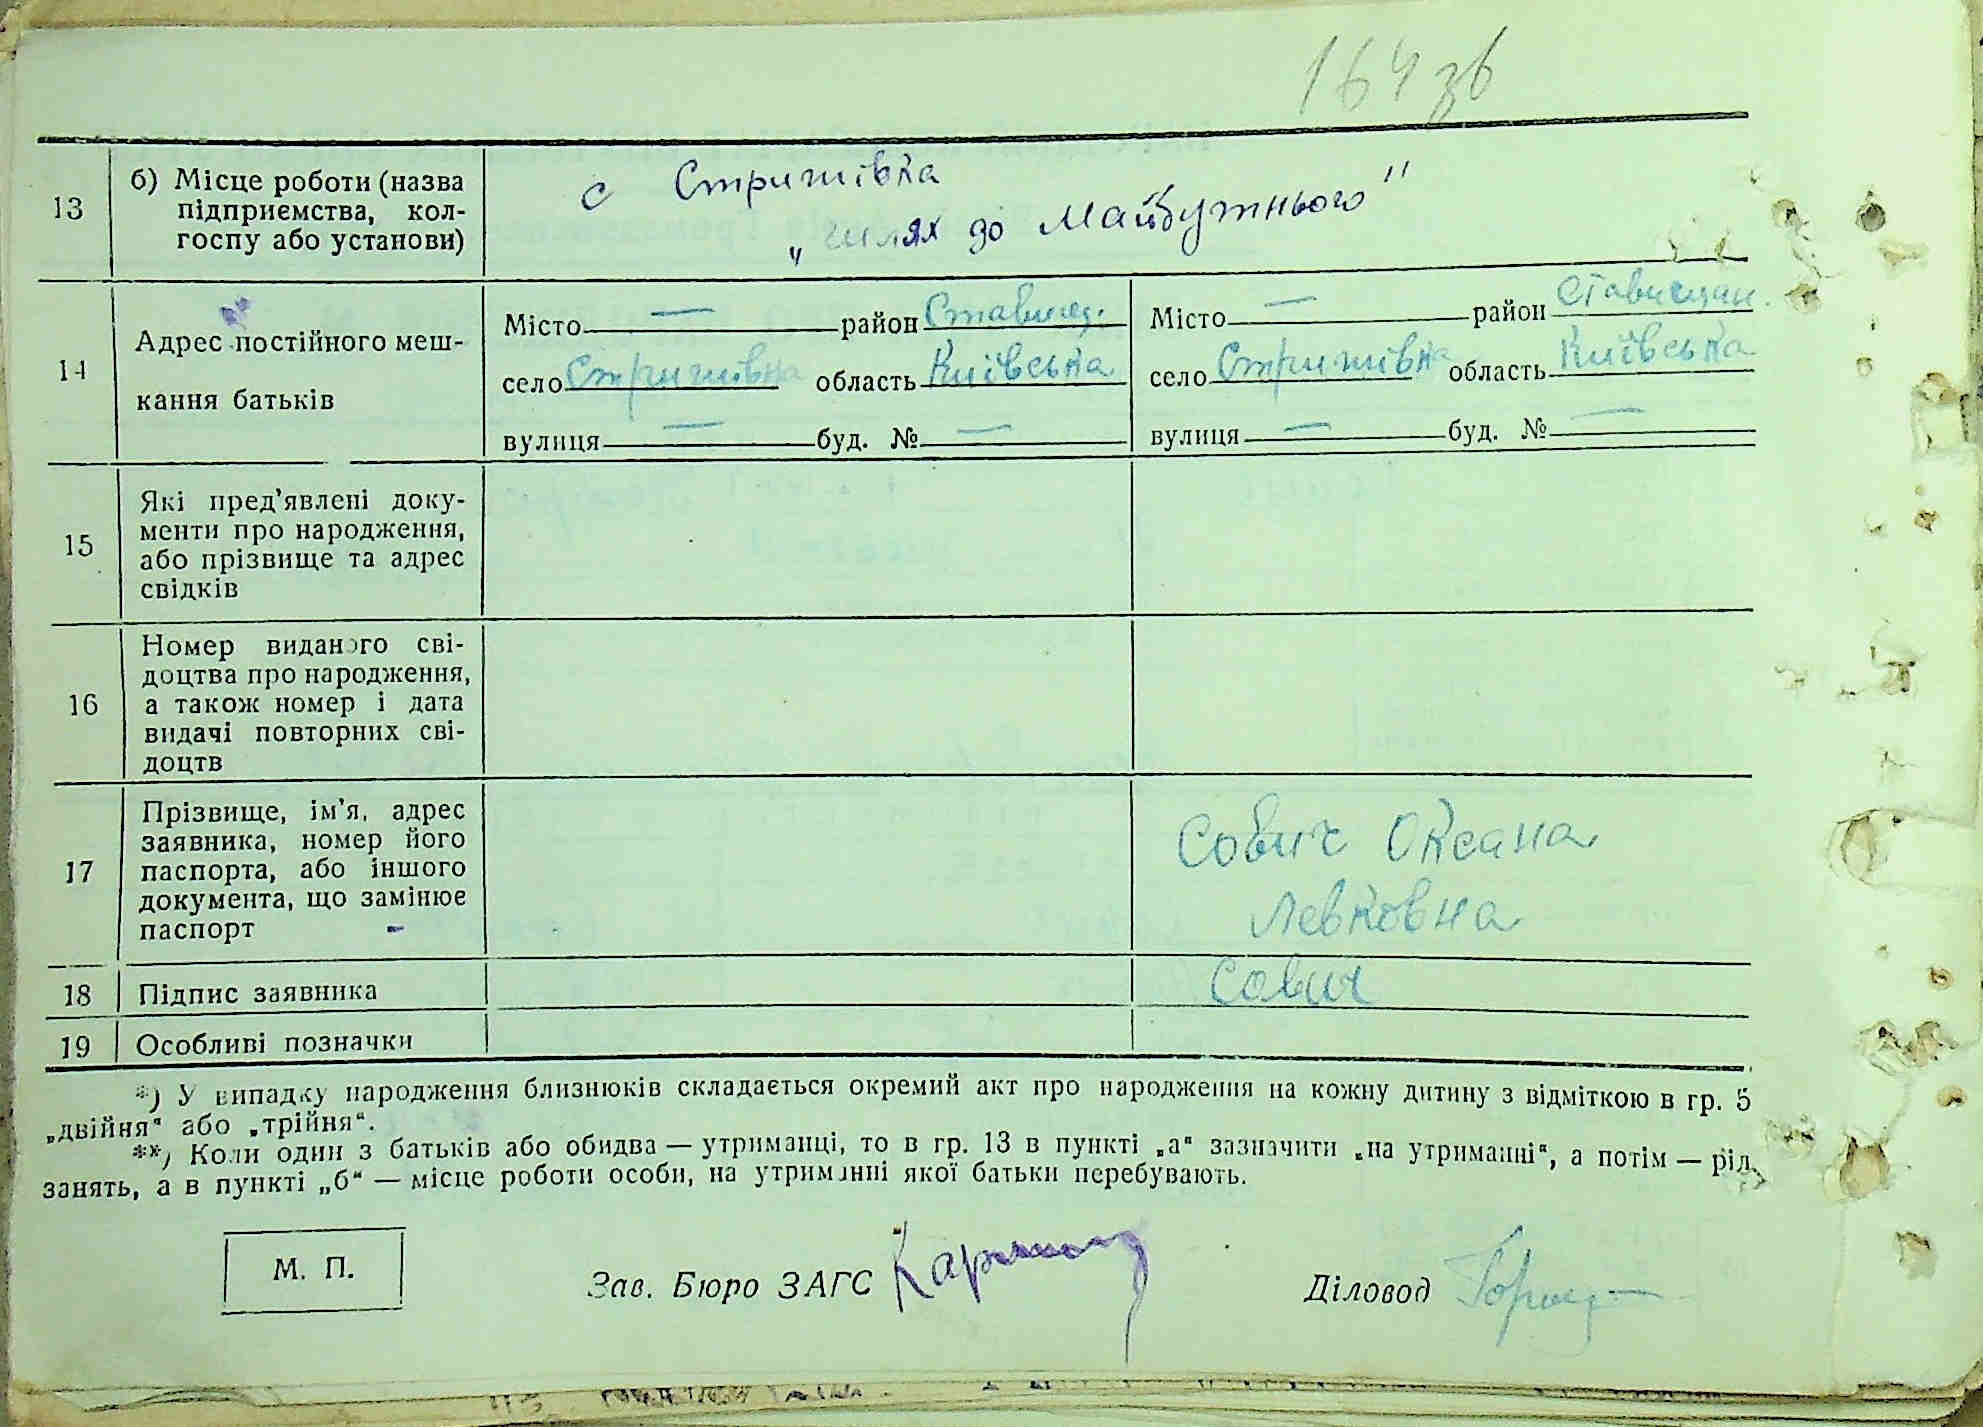 164 зв
13
б) Місце роботи (назва
підприємства, кол-
госпу або установи)
с Стрижівка
„Шлях до Майбутнього"
14
Адрес постійного меш-
кання батьків
Місто — район Ставищ.
село Стрижівка область Київська
вулиця — буд. № —
Місто — район Ставищан.
село Стрижівка область Київська
вулиця — буд. № —
15
Які пред'явлені доку-
менти про народження,
або прізвище та адрес
свідків
16
Номер виданого сві-
доцтва про народження,
а також номер і дата
видачі повторних сві-
доцтв
17
Прізвище, ім'я, адрес
заявника, номер його
паспорта, або іншого
документа, що замінює
паспорт
Сович Оксана
Левковна
18
Підпис заявника
Сович
19
Особливі позначки
*) У випадку народження близнюків складається окремий акт про народження на кожну дитину з відміткою в гр. 5
„двійня“ або „трійня“.
**) Коли один з батьків або обидва — утриманці, то в гр. 13 в пункті „а“ зазначити „на утриманні“, а потім — рід
занять, а в пункті „б“ — місце роботи особи, на утриманні якої батьки перебувають.
М. П.
Зав. Бюро ЗАГС
Діловод